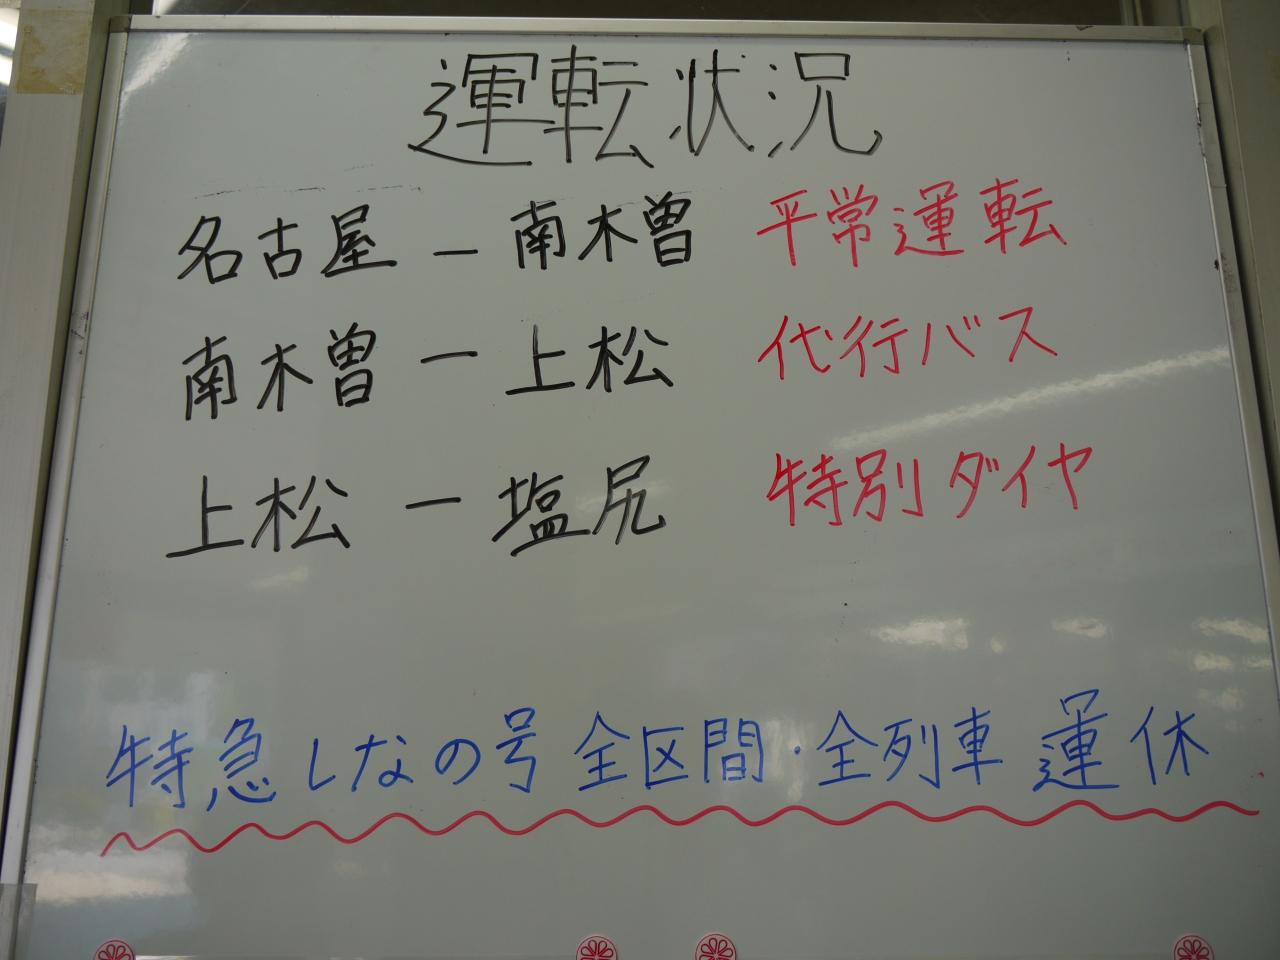 運転状況
名古屋 － 南木曽 平常運転
南木曽 － 上松 代行バス
上松 － 塩尻 特別ダイヤ
特急しなの号 全区間・全列車 運休